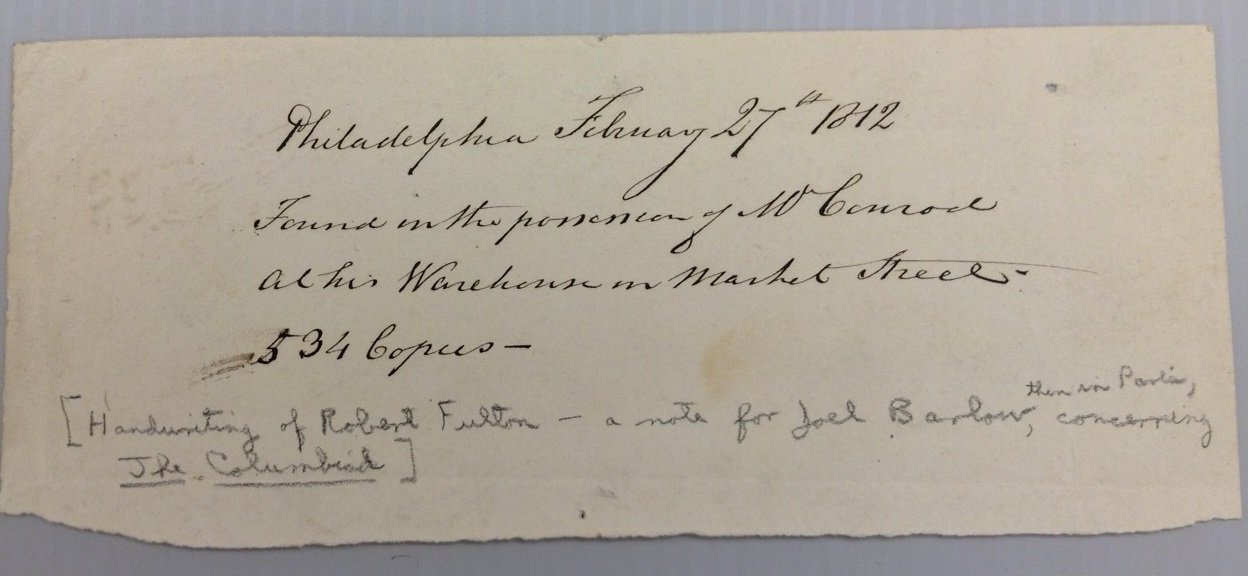 Philadelphia February 27th 1812
Found in the possession of Mr Conrod
at his Warehouse in Market Street -
534 Copies —
then in Paris,
[Handwriting of Robert Fulton — a note for Joel Barlow, concerning
The Columbiad]